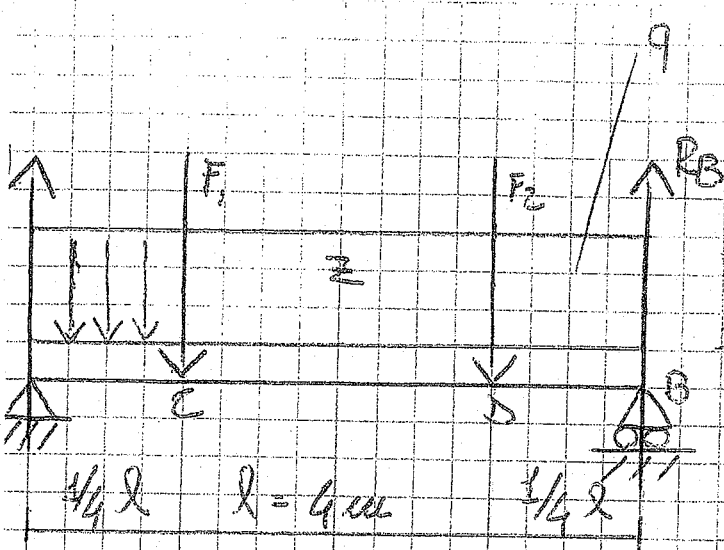 q
F₁ F₂ R_B
Z
C D B
1/4 l l = 4 m 1/4 l